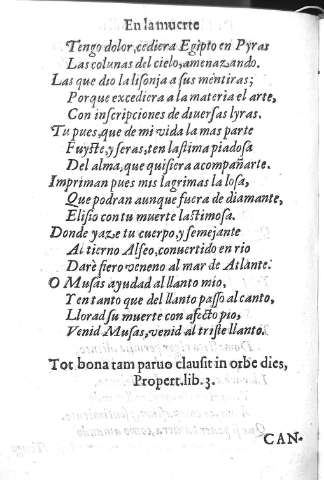 En la muerte
Tengo dolor, cediera Egipto en Pyras
Las colunas del cielo, amenazando.
Las que dio la lisonja a sus mentiras;
Porque excediera a la materia el arte,
Con inscripciones de diuersas lyras.
Tu pues, que de mi vida la mas parte
Fuyste, y seras, ten lastima piadosa
Del alma, que quisiera acompañarte.
Impriman pues mis lagrimas la losa,
Que podran aunque fuera de diamante,
Elisio con tu muerte lastimosa.
Donde yaze tu cuerpo, y semejante
Al tierno Alfeo, conuertido en rio
Darè fiero veneno al mar de Atlante.
O Musas ayudad al llanto mio,
Y en tanto que del llanto passo al canto,
Llorad su muerte con afecto pio,
Venid Musas, venid al triste llanto.
Tot bona tam paruo clausit in orbe dies,
Propert. lib. 3.
CAN-